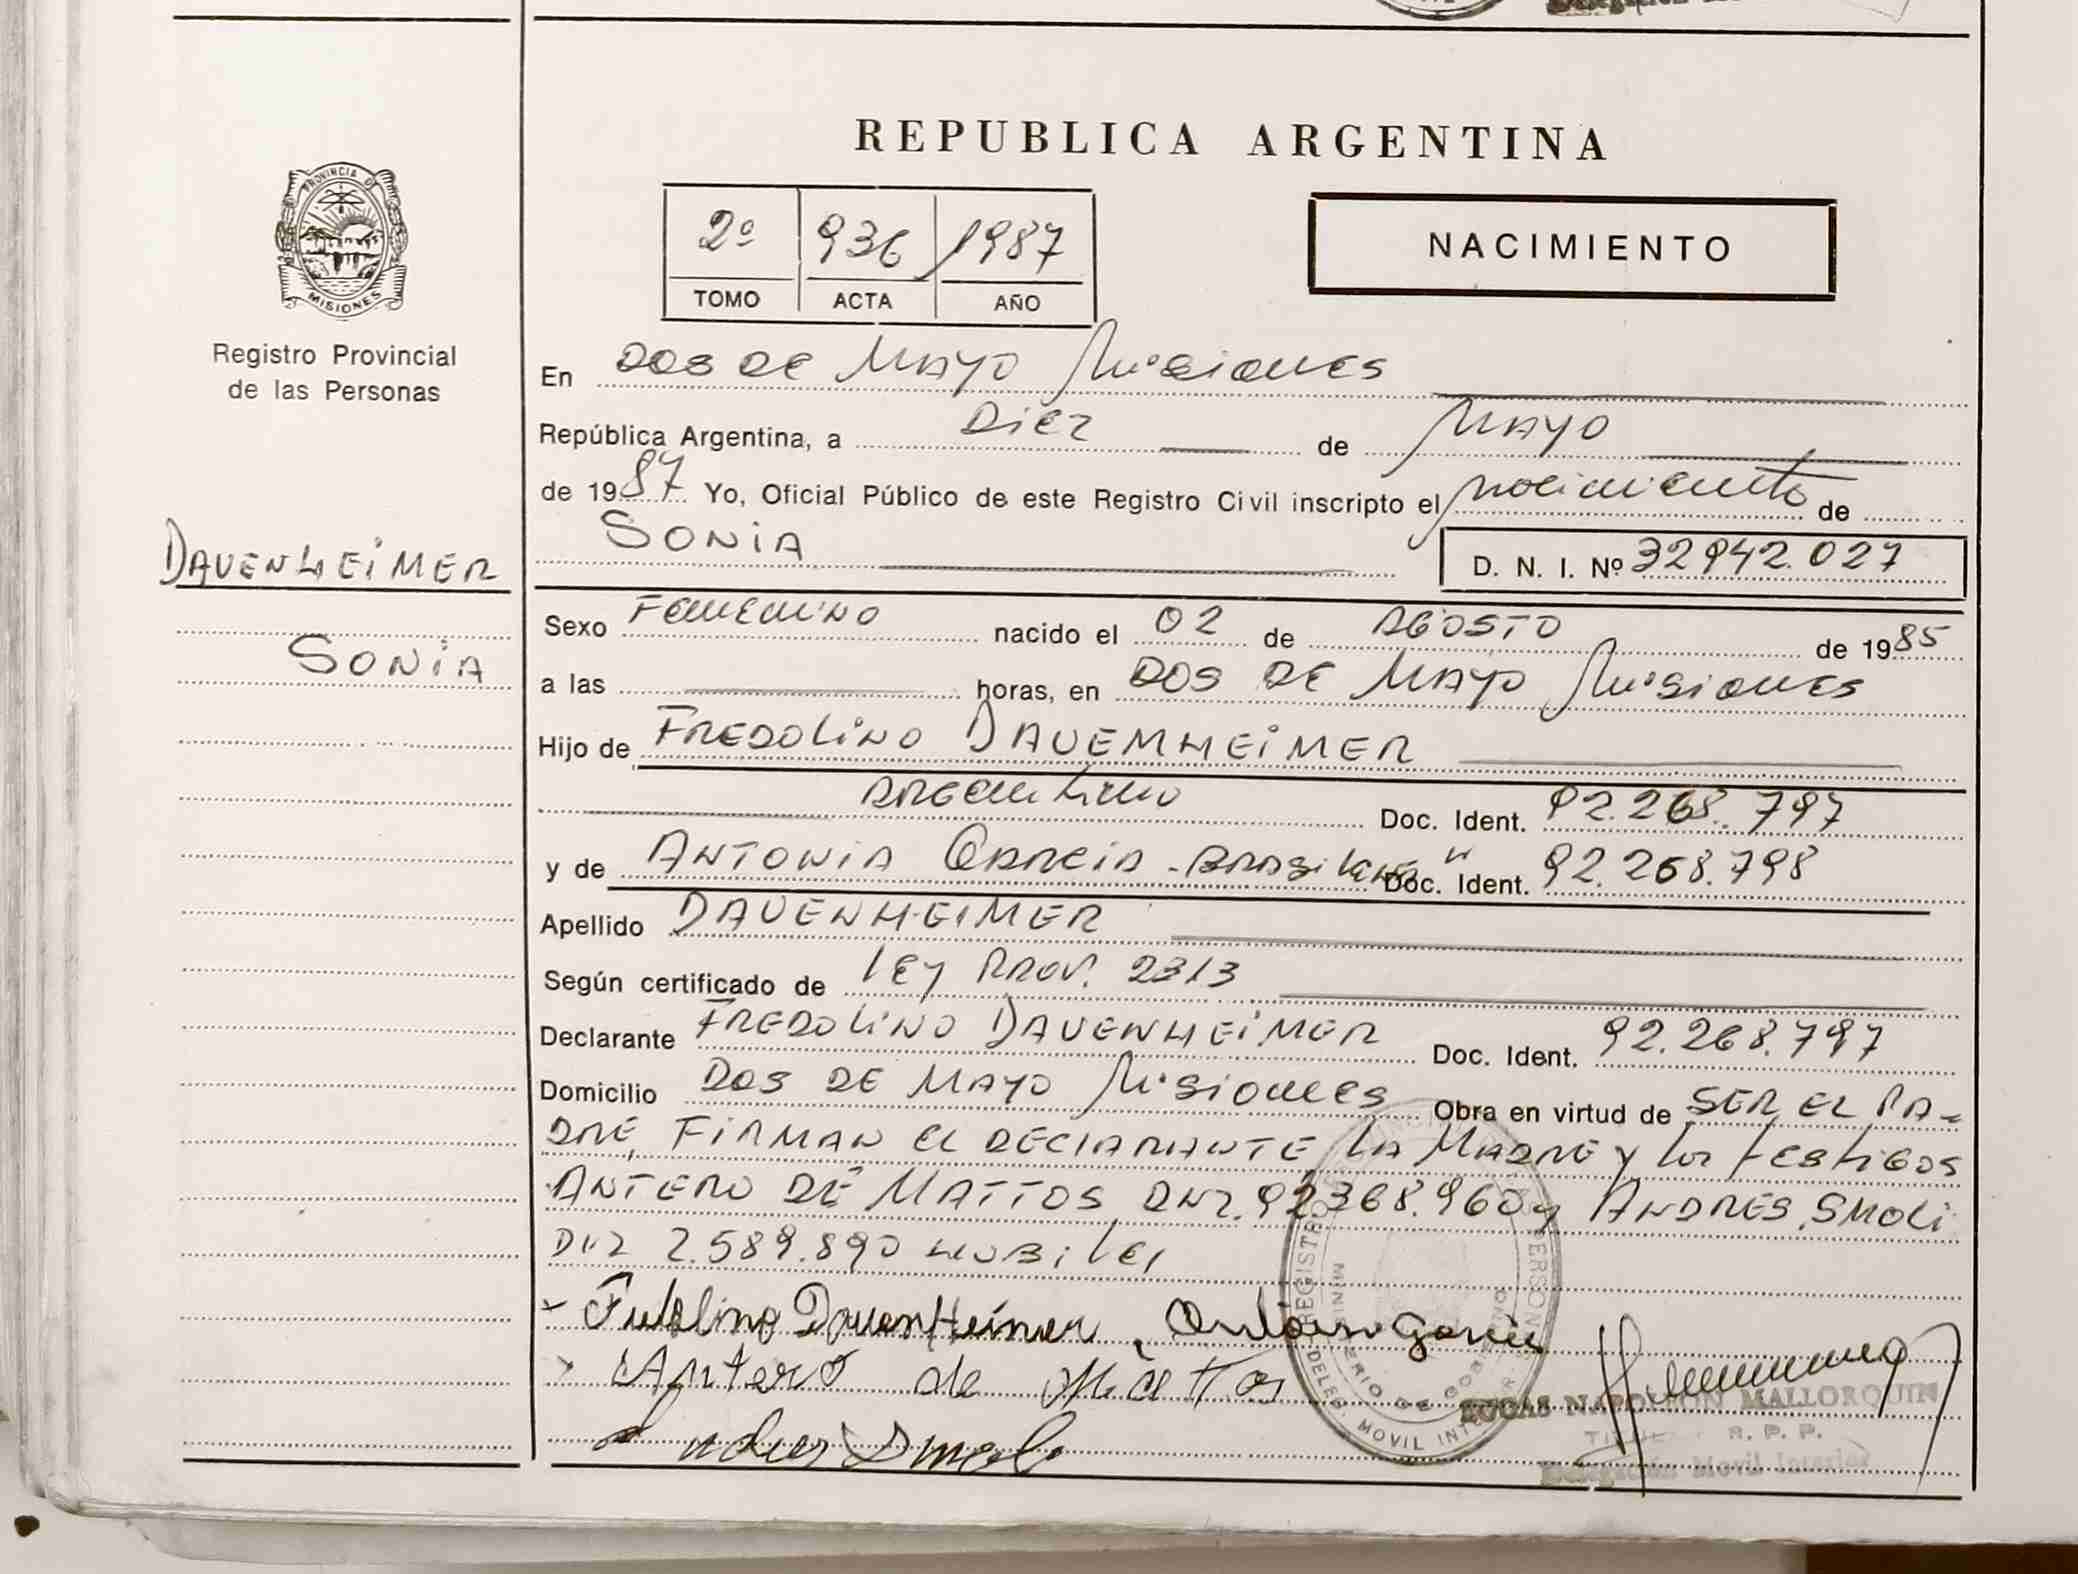 REPUBLICA ARGENTINA
PROVINCIA DE MISIONES
Registro Provincial
de las Personas
2º 936 1987
TOMO ACTA AÑO
NACIMIENTO
En DOS DE MAYO Misiones
República Argentina, a Diez de MAYO
de 1987 Yo, Oficial Público de este Registro Civil inscripto el nacimiento de
SONIA D. N. I. Nº 32942.027
DAUENHEIMER
SONIA
Sexo Femenino nacido el 02 de AGOSTO de 1985
a las horas, en DOS DE MAYO Misiones
Hijo de FREDOLINO DAUEMHEIMER
ARGentino Doc. Ident. 92.268.797
y de ANTONIA GARCIA - BRASILeña Doc. Ident. 92.268.798
Apellido DAUENHEIMER
Según certificado de LEY PROV. 2313
Declarante FREDOLINO DAUENHEIMER Doc. Ident. 92.268.797
Domicilio DOS DE MAYO Misiones Obra en virtud de SER EL PA-
DRE, FIRMAN EL DECLARANTE, LA MADRE y los testigos
ANTERO DE MATTOS, DNI. 92.368.960 y ANDRES SMOLI
DNI 2.589.890
DauenHeimer García
Antero de Mattos
LUCAS NAPOLEON MALLORQUIN
R. P. P.
Delegación Movil Interior